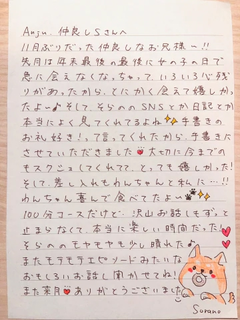 Anju. 仲良しSさんへ
11月ぶりだった仲良しなお兄様〜!!
先月は年末最後の最後に女の子の日で
急に会えなくなっちゃって、いろいろ心残
りがあったから、とにかく会えて嬉しかっ
たよ〜 そして、そらのSNSとか日記とか
本当によく見てくれてるよね 手書きの
お礼好き!って言ってくれたから、手書きに
させていただきました 大切に今までの
もスクショしてくれてて、とっても嬉しかった!
そして、差し入れもわんちゃんと私に…!!
わんちゃん喜んで食べてたよ〜
100分コースだけど…沢山お話しもずっと
止まらなくて、本当に楽しい時間だった!
そらののモヤモヤも少し晴れた♪
またモテモテエピソードみたいな
おもしろいお話し聞かせてね!
また来月 ありがとうございました
Sorano